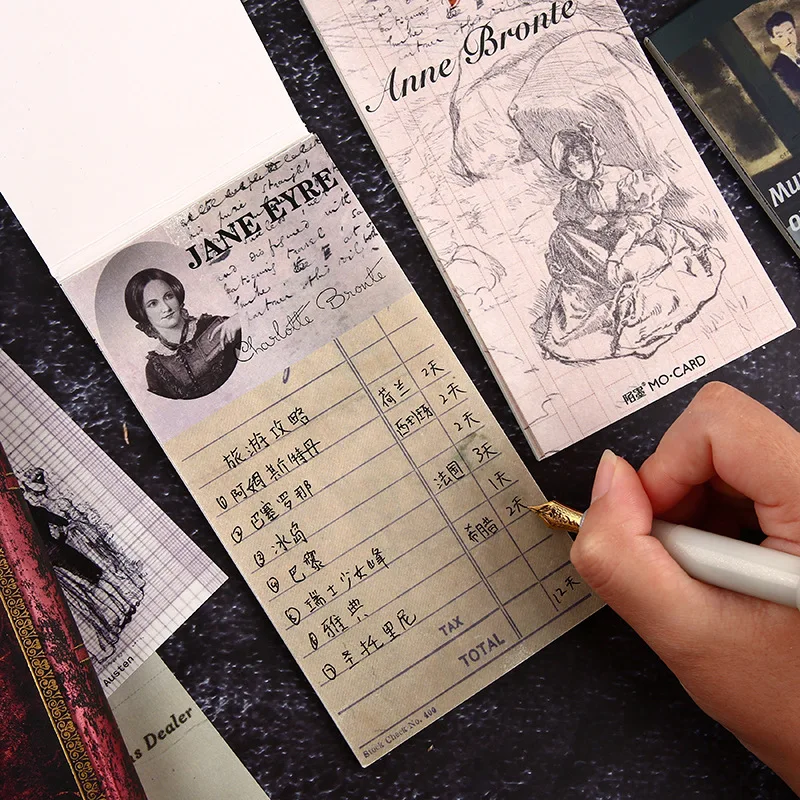 JANE EYRE
Charlotte Bronte
旅游攻略
①阿姆斯特丹 荷兰 2天
②巴塞罗那 西班牙 2天
③冰岛 2天
④巴黎 法国 3天
⑤瑞士少女峰 1天
⑥雅典 希腊 2天
⑦圣托里尼
TAX
TOTAL 12天
Stock Check No. 499
Anne Bronte
陌墨 MO·CARD
Austen
s Dealer
Mu
o